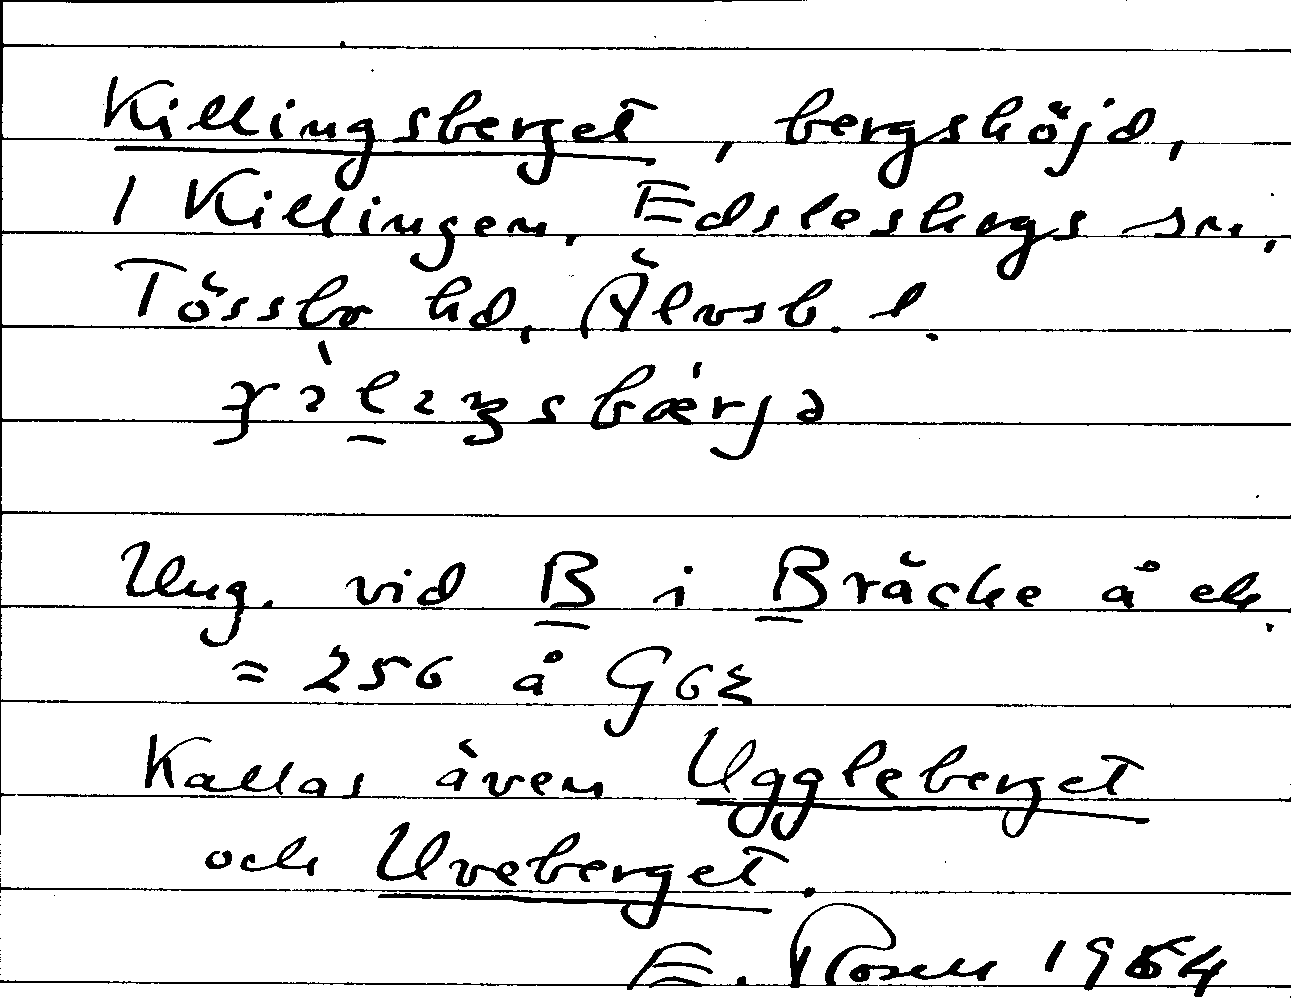 Killingsberget, bergshöjd,
i Killingen, Edsleskogs sn,
Tössbo hd, Älvsb. l.
Ung. vid B i Bräcke å ek.
= 256 å G62
Kallas även Uggleberget
och Uveberget.
E. Rosell